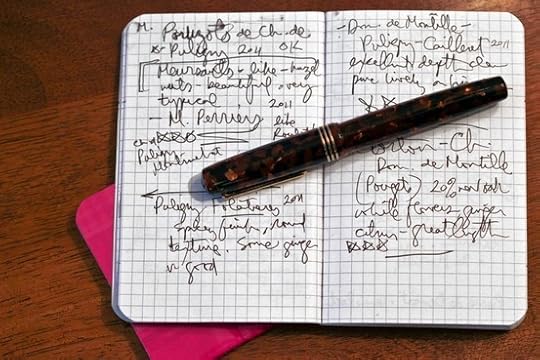 M. Porusots de Ch. de
Puligny 2011 OK
Meursaults - like - hazel
nuts - beautiful, very
typical, 2011
- M. Perrières
like
Puligny
Montrachet
Puligny Folatières 2011
spicy finish, round
tasting. Some ginger
v. good
- Dom. de Montille -
Puligny - Cailleret 2011
excellent depth clear
pure lively
Corton - Ch.
Dom. de Montille
(Pouget) 20% new oak
white flowers - ginger
citrus - great length